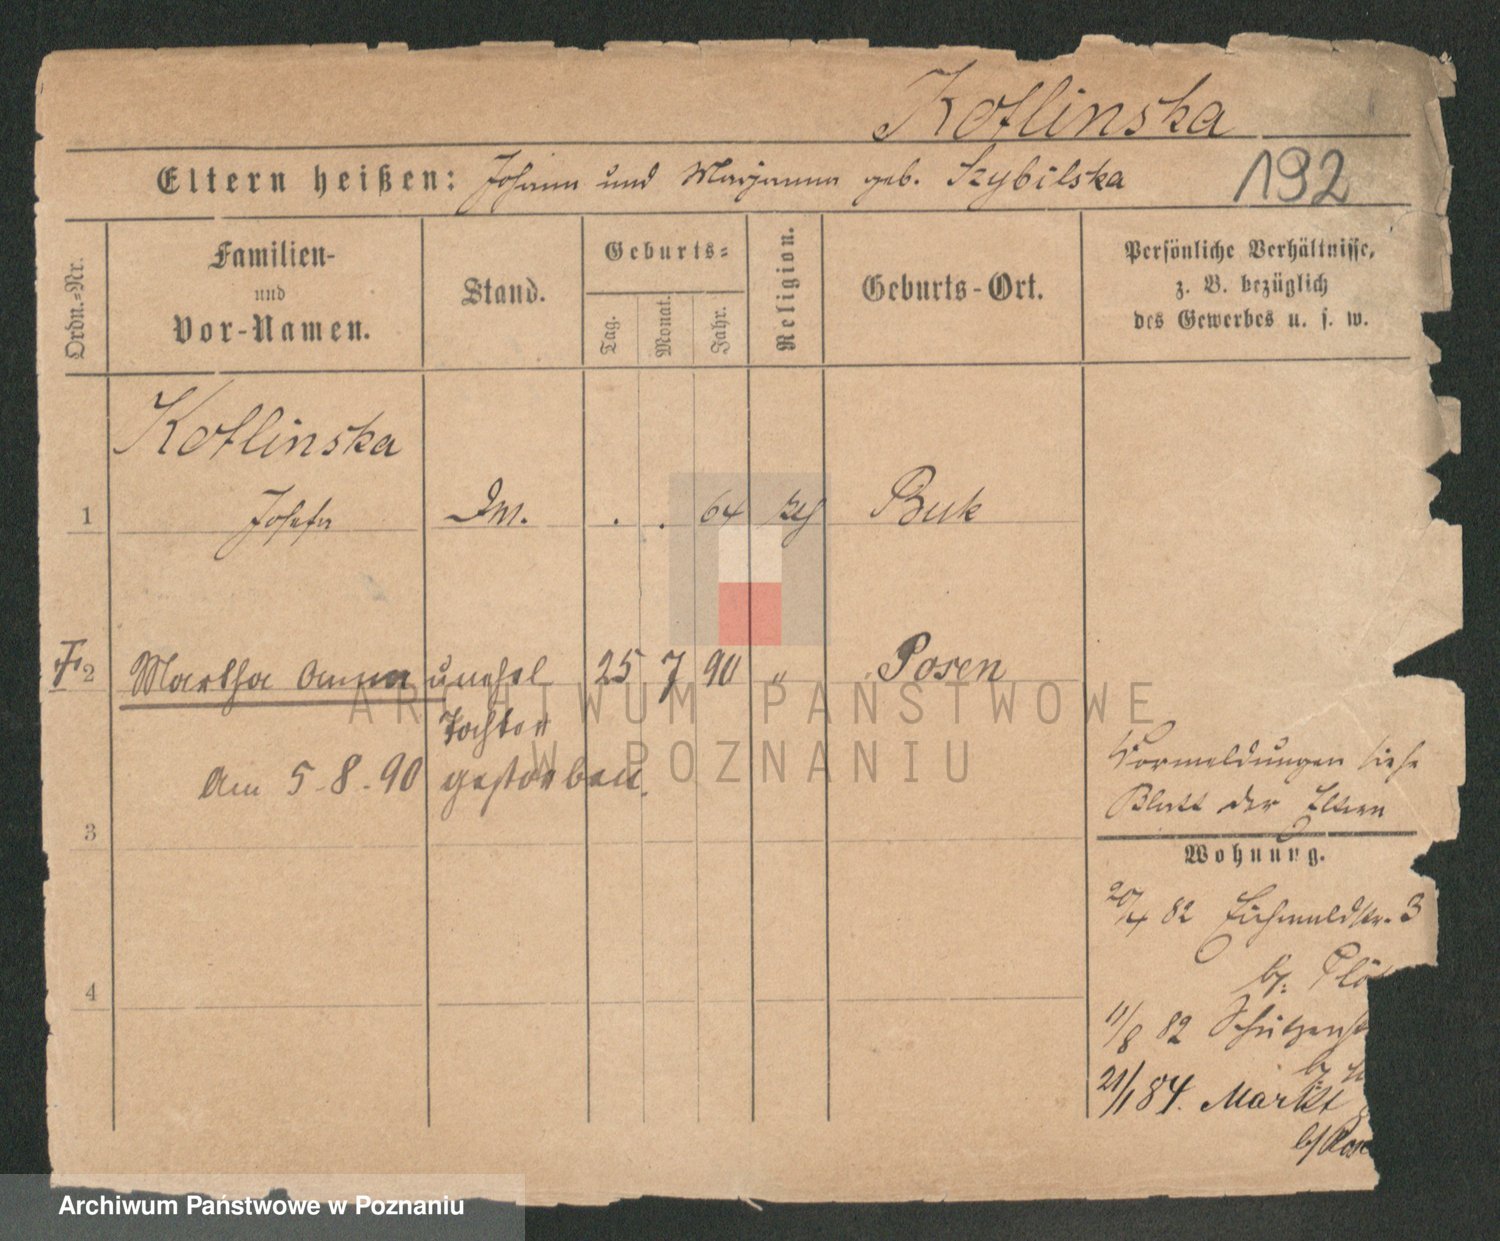 Kotlinska
Eltern heißen: Johann und Marjanna geb. Szybilska
192
Ordn.-Nr.
Familien-
und
Vor-Namen.
Stand.
Geburts-
Tag.
Monat.
Jahr.
Religion.
Geburts-Ort.
Persönliche Verhältnisse,
z. B. bezüglich
des Gewerbes u. s. w.
Kotlinska
1 Josefa . . 64 Buk
2 Martha Anna unehel 25 7 90 " Posen
Tochter
Am 5.8.90 gestorben.
Vormeldungen siehe
Blatt der Eltern
3
Wohnung.
20/4 82 Eichwaldstr. 3
4
11/8 82 Schützenst
21/1 84. Markt
ARCHIWUM PAŃSTWOWE
W POZNANIU
Archiwum Państwowe w Poznaniu